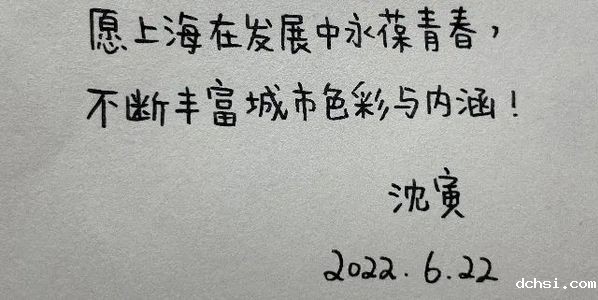 愿上海在发展中永葆青春，
不断丰富城市色彩与内涵！
沈寅
2022.6.22
dchsi.com